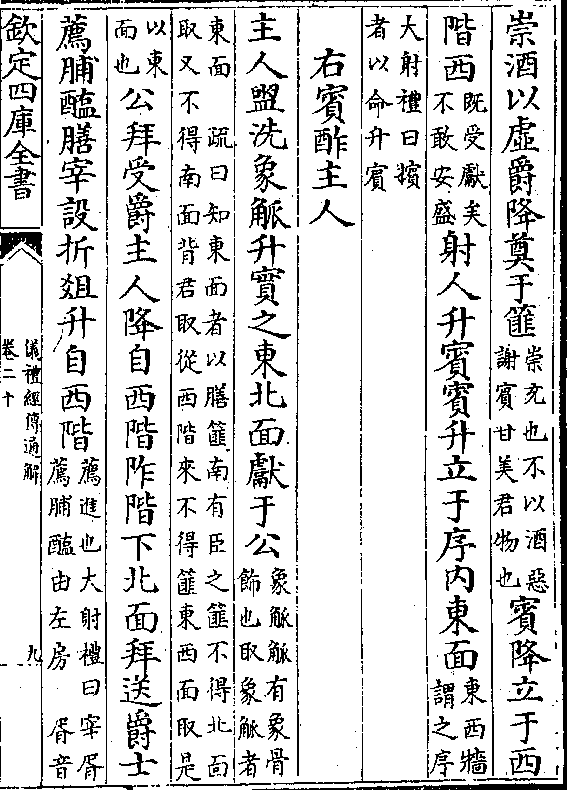 崇酒以虛爵降奠于篚崇充也不以酒惡謝賓甘美君物也賓降立于西
階西既受獻矣不敢安盛射人升賓賓升立于序内東面東西牆謂之序
大射禮曰擯者以命升賓
右賓酢主人
主人盥洗象觚升實之東北面獻于公象觚觚有象骨飾也取象觚者
東面 疏曰知東面者以膳篚南有臣之篚不得北面取又不得南面背君取從西階來不得篚東西面取是
以東面也公拜受爵主人降自西階阼階下北面拜送爵士
薦脯醢膳宰設折俎升自西階薦進也大射禮曰宰胥薦脯醢由左房 胥音
欽定四庫全書
儀禮經傳通解
卷二十
九